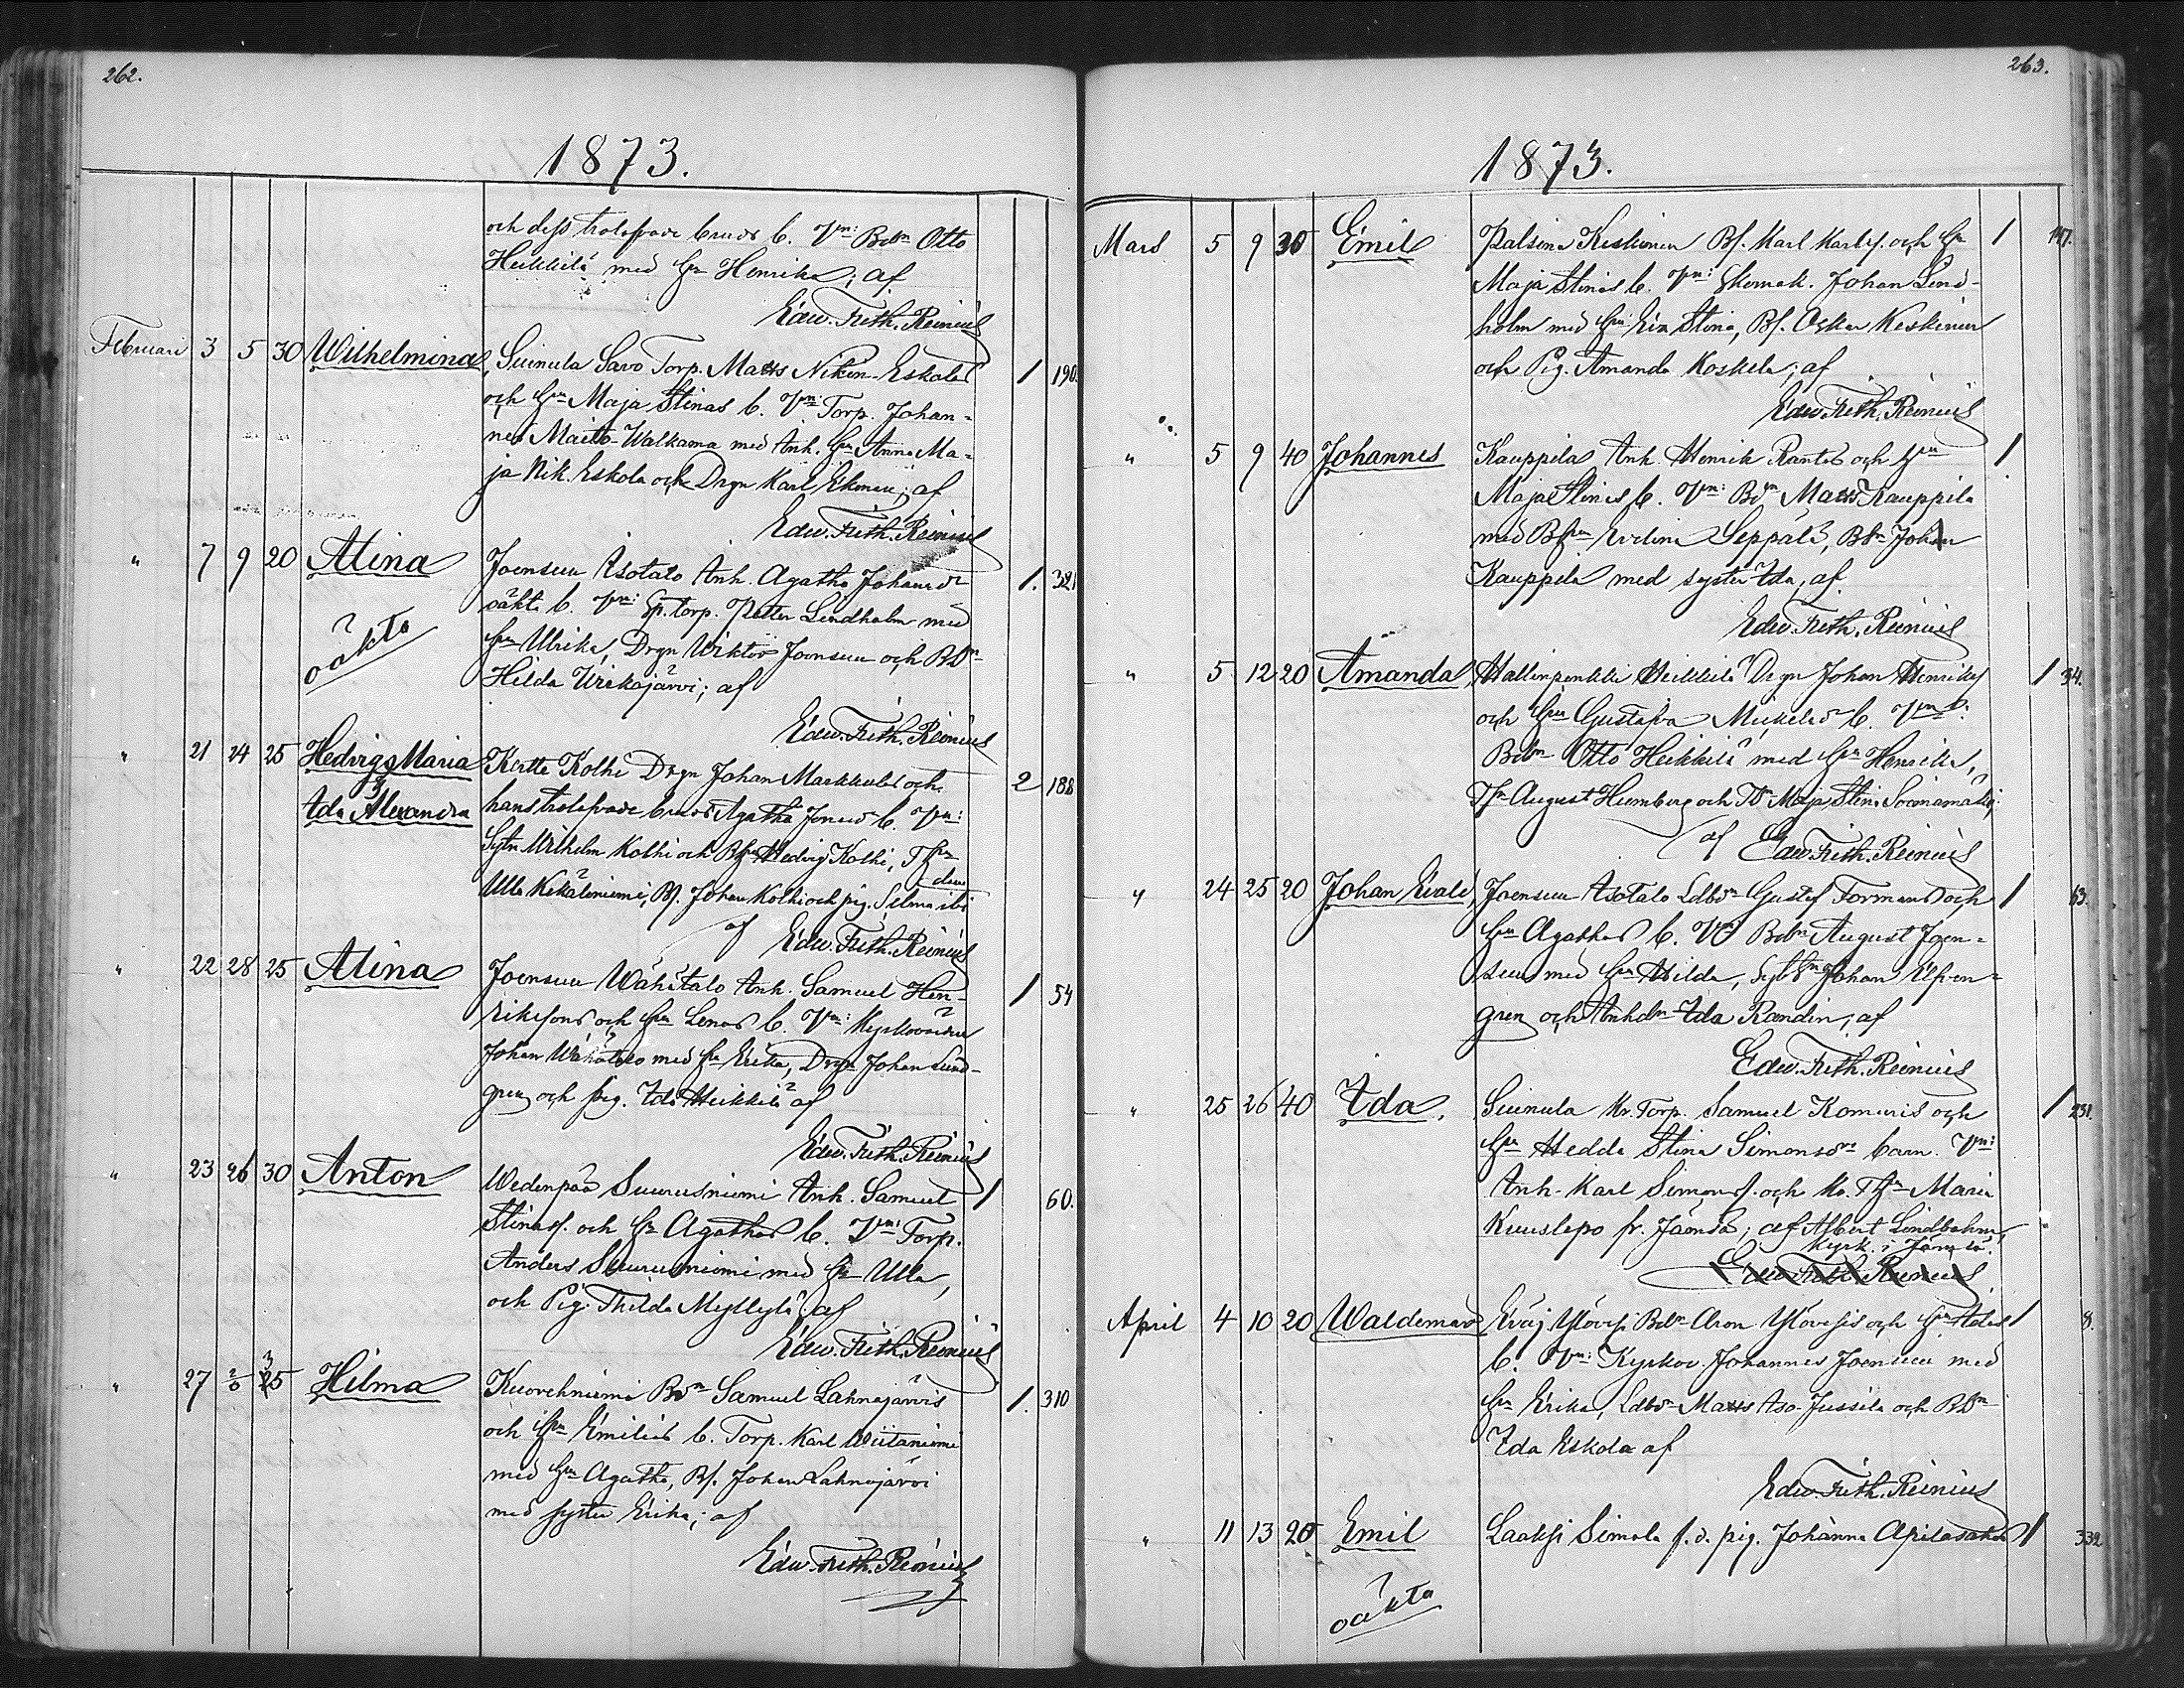 262.
1873.
och dess trolofvade bruds b. Vn: Bdn Otto
Heikkilä med hu Henrika; af
Edw. Frith. Reinius
Februari 3 5 30 Wilhelmina, Suinula Savo Torp. Matts Nikon-Eskolas 1 190.
och hu Maja Stinas b. Vn: Torp. Johan-
nes Maito-Walkama med Anh. hu Anna Ma-
ja Nik. Eskola och Drgn Karl Ekman; af
Edw. Frith. Reinius
" 7 9 20 Alina Joensuu Isotalo Anh. Agatha Johansdr 1. 321
oäkta b. Vn: Sp. torp. Petter Lindholm med
oäkta
hu Ulrika, Drgn Wiktor Joensuu och Bdn
Hilda Wirkajärvi; af
Edw. Frith. Reinius
" 21 24 25 Hedvig Maria Kertte Kolhi Drgn Johan Markkulas och 2 188
Ida Alexandra hans trolofvade bruds Agatha Jonasdr b. Vn:
Sytn. Wilhelm Kolhi och Bhu Hedvig Kolhi, Thu
Ulla Kekäleniemi, Bs. Johan Kolhi och pig. Selma ibidem
af Edw. Frith. Reinius
" 22 28 25 Alina Joensuu Wähätalo Anh. Samuel Hen- 1 54
rikssons och hu Lenas b. Vn: Kyrkovärden
Johan Wähätalo med hu Erika, Drgn Johan Lund-
gren och pig. Ida Heikkilä af
Edw. Frith. Reinius
" 23 26 30 Anton Wedenpää Suurusniemi Anh. Samuel 1 60.
Stinas. och hu Agathas b. Vn: Torp.
Anders Suurusniemi med hu Ulla,
och Pig. Thilda Myllylä; af
Edw. Frith. Reinius
" 27 2/3 25 Hilma Kuorehniemi Bdn Samuel Lahnajärvis 1. 310
och hu Emilias b. Torp. Karl Wiitaniemi
med hu Agatha, Bs. Johan Lahnajärvi
med syster Erika; af
Edw. Frith. Reinius
263.
1873.
Mars 5 9 30 Emil Palsina Keskinen Bs. Karl Karls. och hu 1 147.
Maja Stinas b. Vn: Skomak. Johan Lind-
holm med hu Eva Stina, Bs. Oskar Keskinen
och Pig. Amanda Koskela; af
Edw. Frith. Reinius
" 5 9 40 Johannes Kauppila Anh. Henrik Rantas och hu 1
Maja Stinas b. Vn: Bdn Matts Kauppila
med Bhu Evelina Seppälä, Bdn Johan
Kauppila med syster Ida, af
Edw. Frith. Reinius
" 5 12 20 Amanda, Hallinpenkki Heikkilä Drgn Johan Henriks 1 34.
och hu Gustafva Mickelsdr b. Vn:
Bdn Otto Heikkilä med hu Henrika,
Thn August Humberg och Tdr Maja Stina Soconamäki;
af Edw. Frith. Reinius
" 24 25 20 Johan Evald, Joensuu Isotalo Ldbdn Gustaf Formans och 1 63.
hu Agathas b. Vn: Bdn August Joen-
suu med hu Hilda, Johan Elfven-
gren och Anhdr Ida Randin; af
Edw. Frith. Reinius
" 25 26 40 Ida, Suinula Kr. Torp. Samuel Komuris och 1 231.
hu Hedda Stina Simonsdr barn. Vn:
Anh. Karl Simons. och Kr. Thu Maria
Kuuslepo fr. Jämsä; af Albert Lindbohm,
Kyrk. i Jämsä.
Edw. Frith. Reinius
April 4 10 20 Waldemar Eväj. Ylövesi Bdn Aron Ylövesis och hu Idas 1 8.
b. Vn: Kyrkov. Johannes Joensuu med
hu Erika, Ldbdn Matts Iso-Jussila och Bdn
Ida Eskola af
Edw. Frith. Reinius
" 11 13 20 Emil Laaksi Simola f.d. pig. Johanna Apilasahas 1 332
oäkta